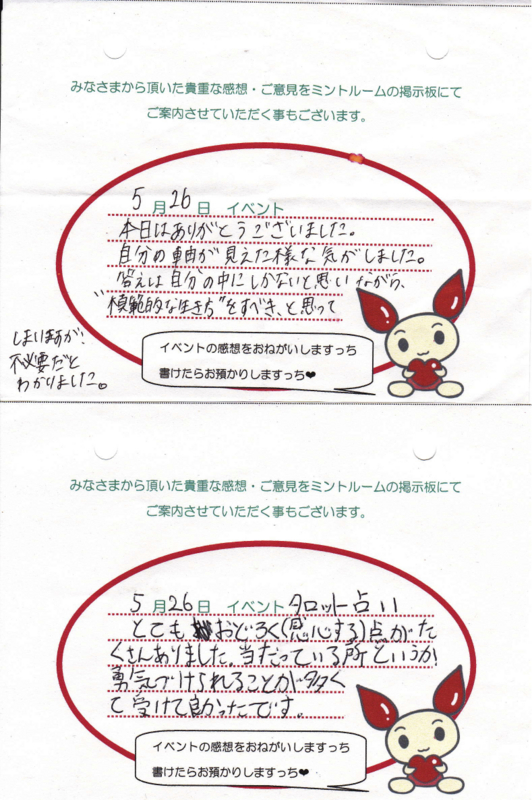 みなさまから頂いた貴重な感想・ご意見をミントルームの掲示板にて
ご案内させていただく事もございます。
5月26日 イベント
本日はありがとうございました。
自分の軸が見えた様な気がしました。
答えは自分の中にしかないと思いながら、
"模範的な生き方"をすべき、と思って
しまいますが、
不必要だと
わかりました。
イベントの感想をおねがいしますっち
書けたらお預かりしますっち♥
みなさまから頂いた貴重な感想・ご意見をミントルームの掲示板にて
ご案内させていただく事もございます。
5月26日 イベント タロット占い
とてもおどろく(感心する)点がた
くさんありました。当たっている所というか
勇気づけられることが多く
て受けて良かったです。
イベントの感想をおねがいしますっち
書けたらお預かりしますっち♥